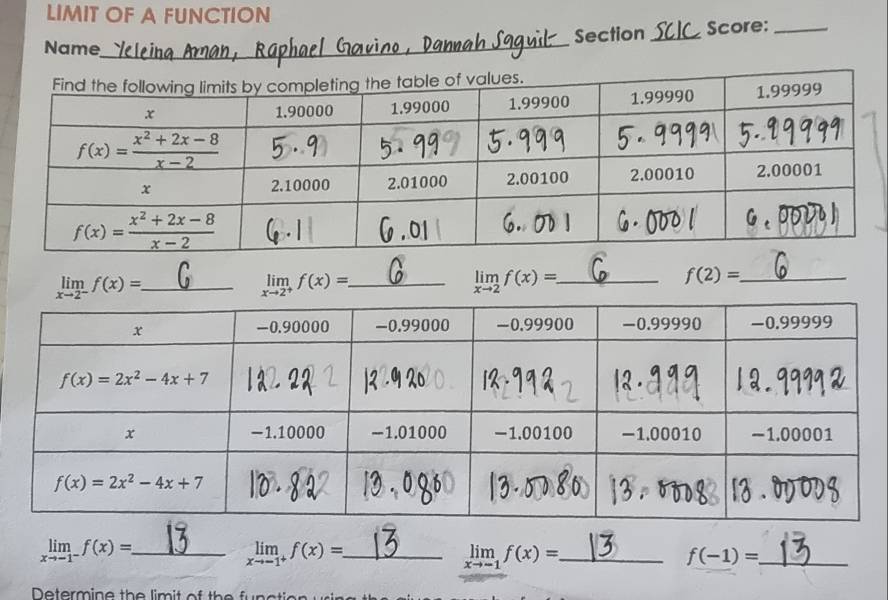 LIMIT OF A FUNCTION
Name Yeleina Aman, Raphael Gavino, Dannah Saguit Section SCIC Score:
Find the following limits by completing the table of values.
x 1.90000 1.99000 1.99900 1.99990 1.99999
f(x) = (x² + 2x − 8)/(x − 2) 5.9 5.99 5.999 5.9999 5.99999
x 2.10000 2.01000 2.00100 2.00010 2.00001
f(x) = (x² + 2x − 8)/(x − 2) 6.1 6.01 6.001 6.0001 6.00001
lim x→2⁻ f(x) = 6 lim x→2⁺ f(x) = 6 lim x→2 f(x) = 6 f(2) = 6
x −0.90000 −0.99000 −0.99900 −0.99990 −0.99999
f(x) = 2x² − 4x + 7 12.22 12.920 12.992 12.999 12.99992
x −1.10000 −1.01000 −1.00100 −1.00010 −1.00001
f(x) = 2x² − 4x + 7 13.82 13.080 13.0080 13.0008 13.00008
lim x→−1⁻ f(x) = 13 lim x→−1⁺ f(x) = 13 lim x→−1 f(x) = 13 f(−1) = 13
Determine the limit of the function using the